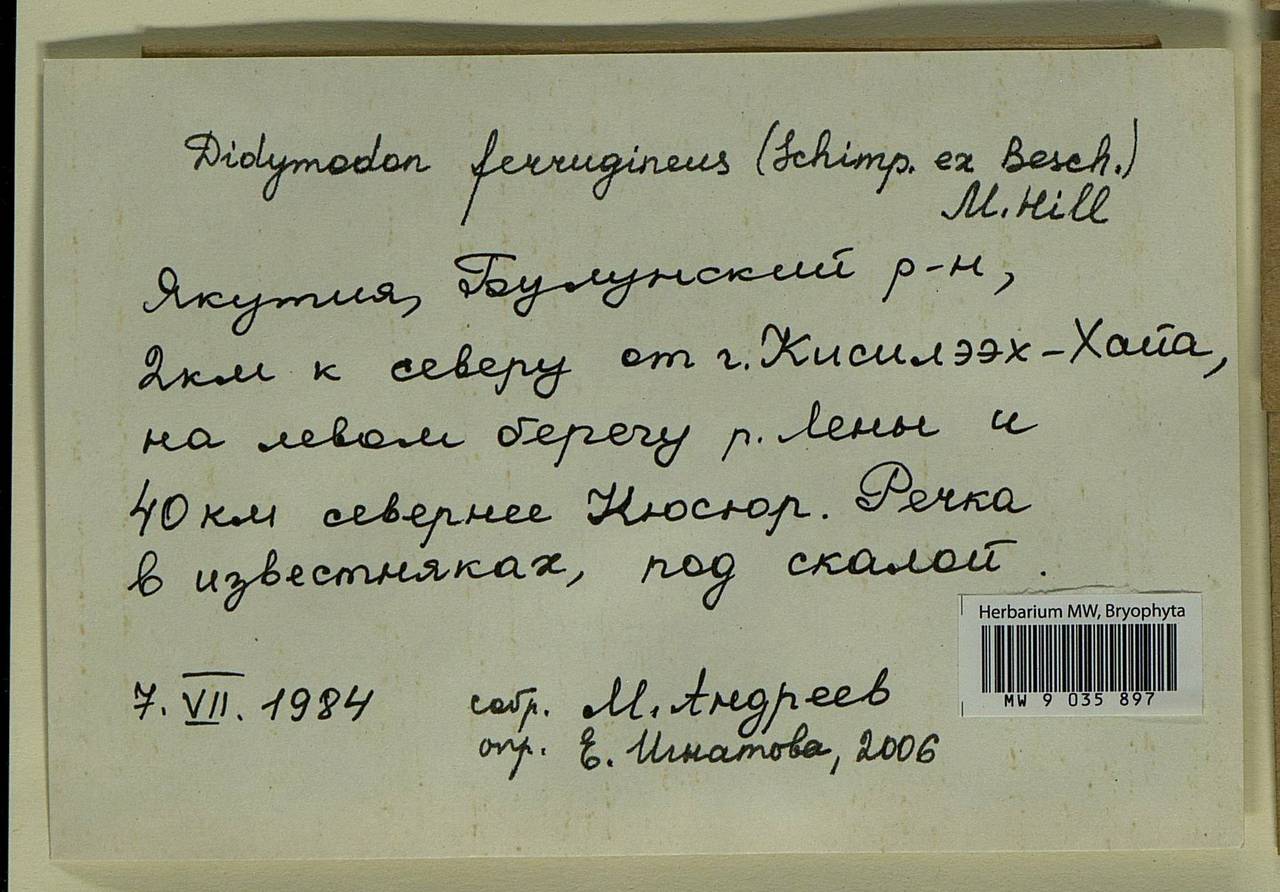 Didymodon ferrugineus (Schimp. ex Besch.)
M. Hill
Якутия, Булунский р-н,
2км к северу от г. Кисилээх-Хайа,
на левом берегу р. Лены и
40 км севернее Кюсюр. Речка
в известняках, под скалой.
Herbarium MW, Bryophyta
MW 9 035 897
7. VII. 1984 собр. М. Андреев
опр. Е. Игнатова, 2006